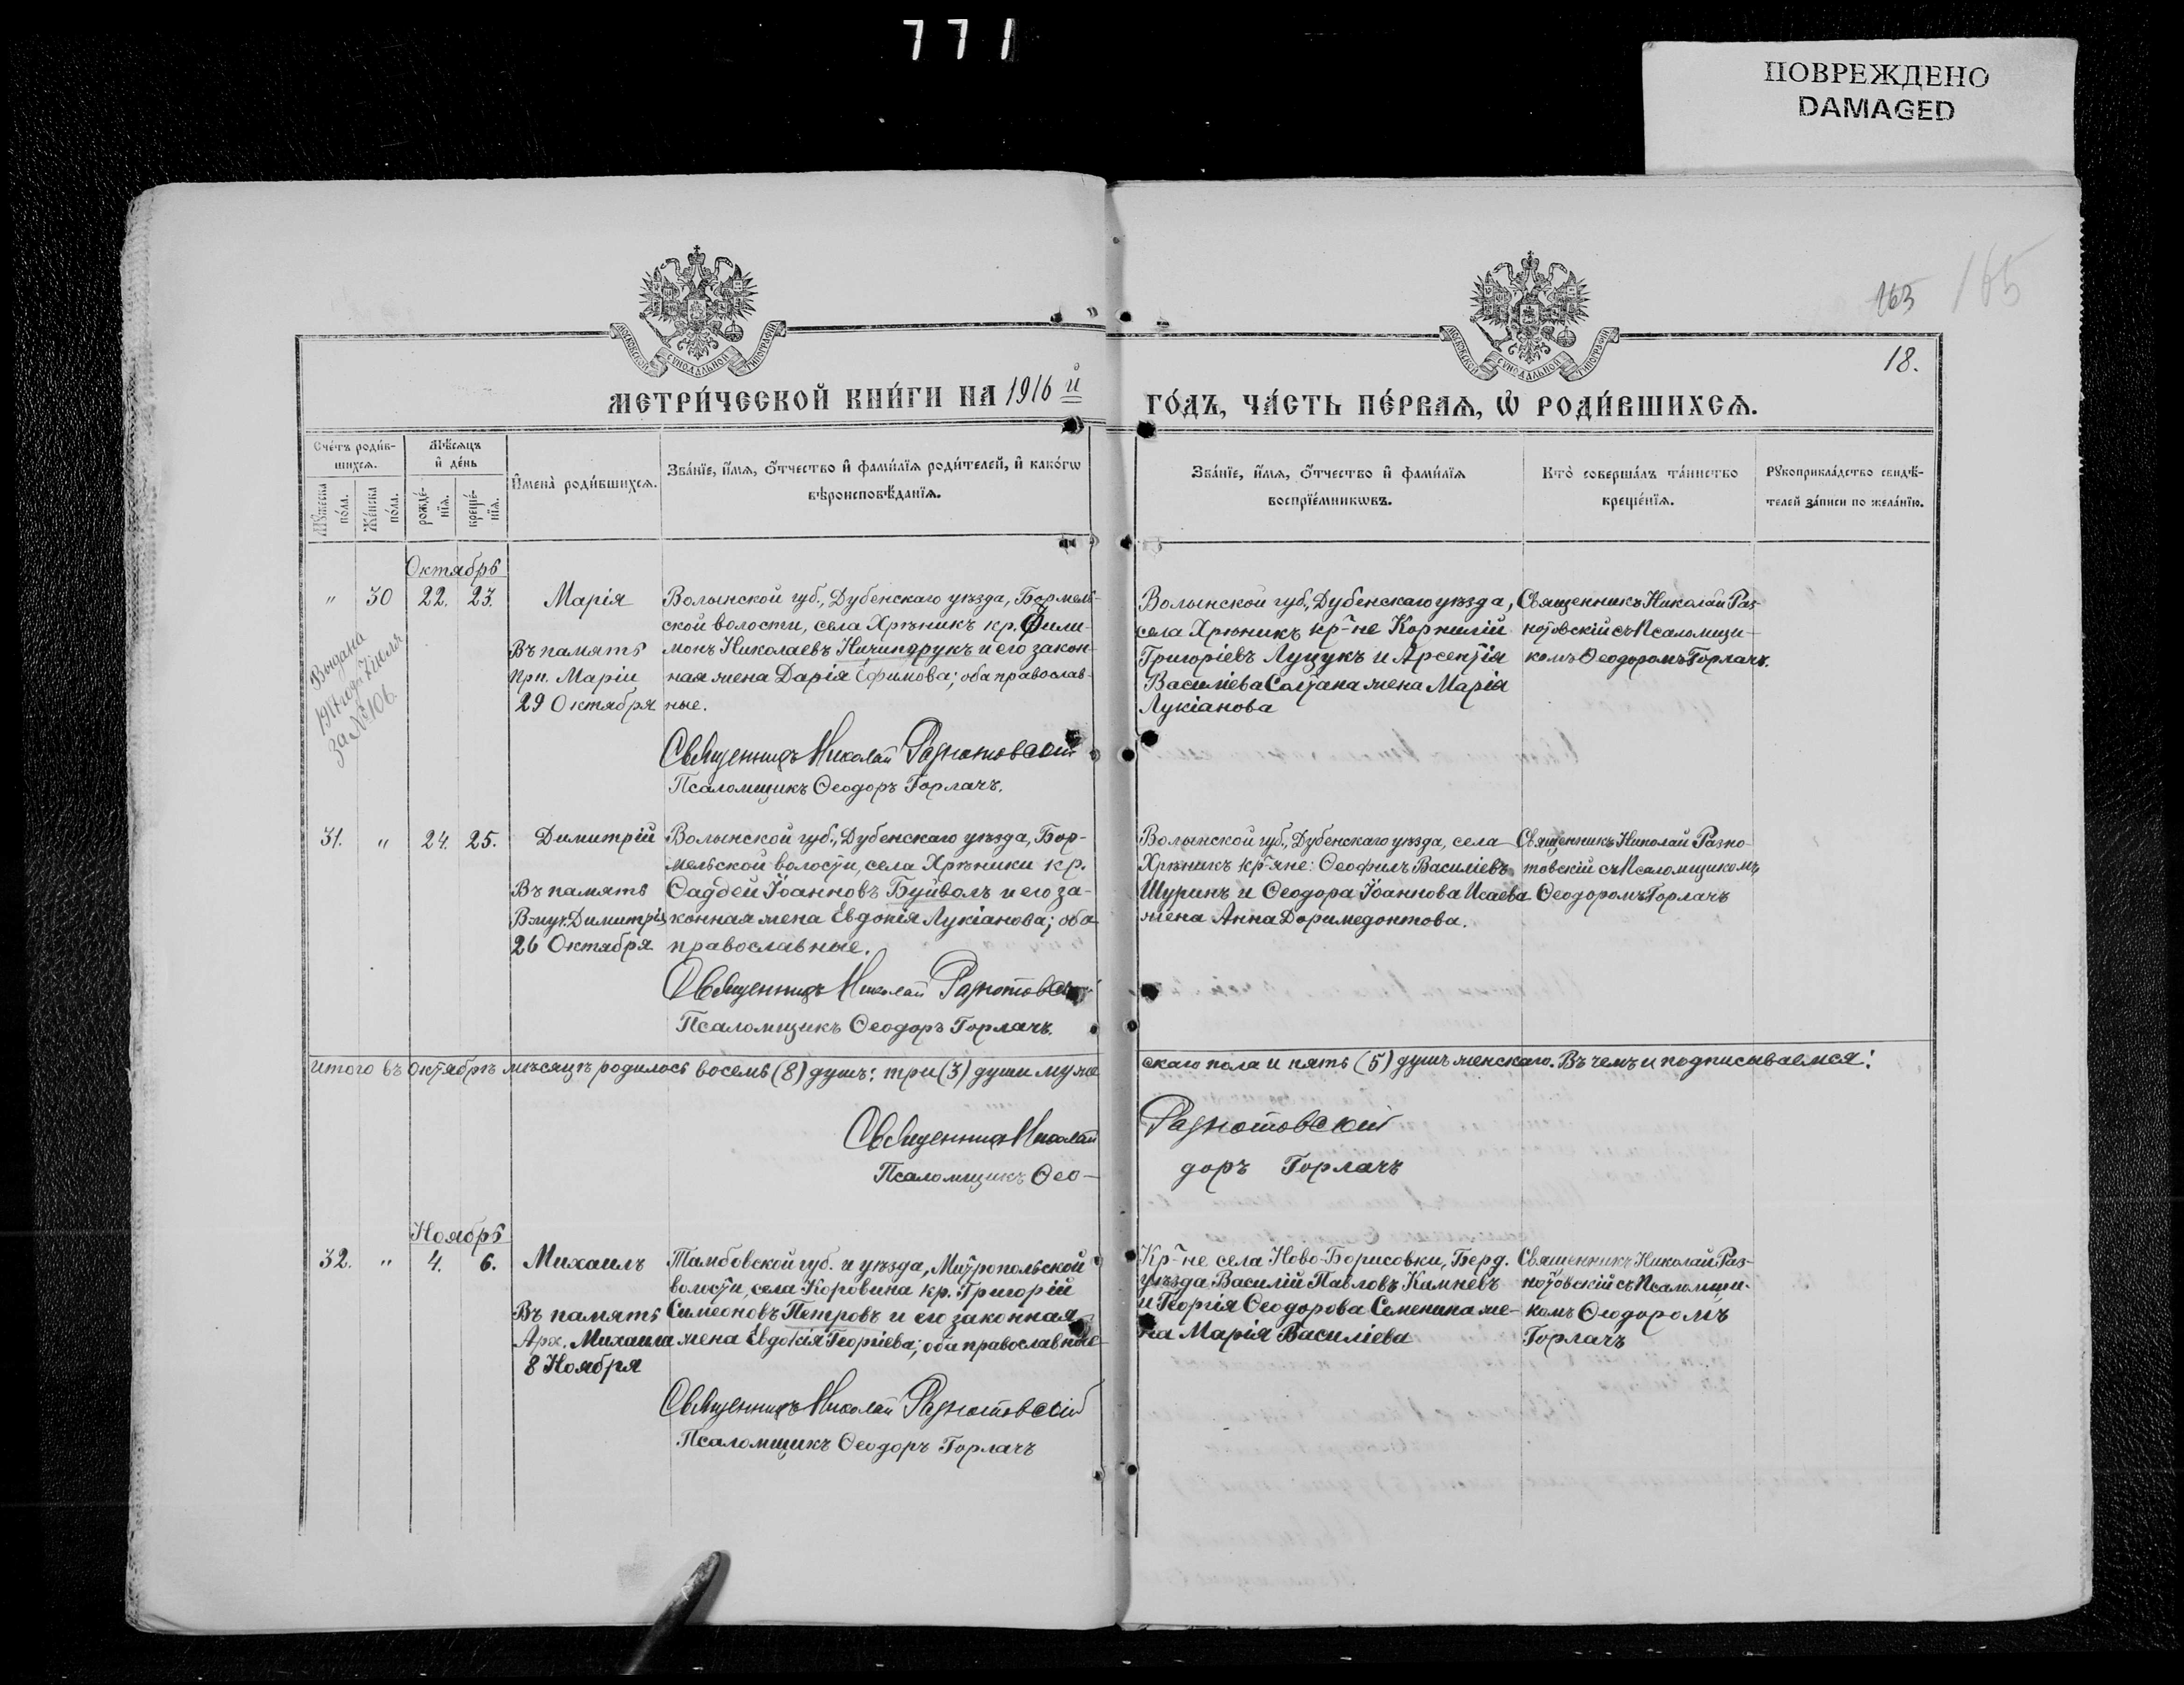 771
ПОВРЕЖДЕНО
DAMAGED
165
163
18.
МОСКОВСКОЙ СѴНОДАЛЬНОЙ ТИПОГРАФІИ
МОСКОВСКОЙ СѴНОДАЛЬНОЙ ТИПОГРАФІИ
МЕТРИ́ЧЕСКОЙ КНИ́ГИ НА 1916й
ГО́ДЪ, ЧА́СТЬ ПЕ́РВАѦ, Ѡ҆ РОДИ́ВШИХСѦ.
Сче́тъ роди́в-
шихсѧ.
Мꙋ́жеска по́ла.
Же́нска по́ла.
Мѣ́сѧцъ
и҆ де́нь
рожде́-
нїѧ.
креще́-
нїѧ.
И҆мена̀ роди́вшихсѧ.
Зва́нїе, и҆́мѧ, ѻ҆́тчество и҆ фами́лїѧ роди́телей, и҆ како́гѡ
вѣроисповѣ́данїѧ.
Зва́нїе, и҆́мѧ, ѻ҆́тчество и҆ фами́лїѧ
воспрїе́мникѡвъ.
Кто̀ соверша́лъ та́инство
креще́нїѧ.
Рꙋкоприкла́дство свидѣ́-
телей за́писи по жела́нїю.
Октябрь
" 30 22. 23.
Выдана
1917 года Іюля
за № 106.
Марія
Въ память
Прп. Маріи
29 Октября
Волынской губ., Дубенскаго уѣзда, Бормель-
ской волости, села Хрѣникъ кр. Фили-
монъ Николаевъ Ничипорукъ и его закон-
ная жена Дарія Ефимова; оба православ-
ные.
Священникъ Николай Разнотовскій
Псаломщикъ Ѳеодоръ Горлачъ.
Волынской губ., Дубенскаго уѣзда,
села Хрѣникъ кр-не Корнилій
Григоріевъ Луцукъ и Арсентія
Василіева Солтана жена Марія
Лукіанова
Священникъ Николай Раз-
нотовскій съ Псаломщи-
комъ Ѳеодоромъ Горлачъ.
31. " 24. 25.
Димитрій
Въ память
Вмуч. Димитрія
26 Октября
Волынской губ., Дубенскаго уѣзда, Бор-
мельской волости, села Хрѣники кр.
Ѳаддей Іоанновъ Буйволъ и его за-
конная жена Евдокія Лукіанова; оба
православные.
Священникъ Николай Разнотовскій
Псаломщикъ Ѳеодоръ Горлачъ.
Волынской губ., Дубенскаго уѣзда, села
Хрѣникъ кр-яне: Ѳеофилъ Василіевъ
Шуринъ и Ѳеодора Іоаннова Исаева
жена Анна Доримедонтова.
Священникъ Николай Разно-
товскій съ Псаломщикомъ
Ѳеодоромъ Горлачъ
Итого въ Октябрѣ мѣсяцѣ родилось восемь (8) душъ: три (3) души муже
скаго пола и пять (5) душъ женскаго. Въ чемъ и подписываемся:
Священникъ Николай
Разнотовскій
Псаломщикъ Ѳео-
доръ Горлачъ
Ноябрь
32. " 4. 6.
Михаилъ
Въ память
Арх. Михаила
8 Ноября
Тамбовской губ. и уѣзда, Митропольской
волости, села Коровина кр. Григорій
Симеоновъ Петровъ и его законная
жена Евдокія Георгіева; оба православные
Священникъ Николай Разнотовскій
Псаломщикъ Ѳеодоръ Горлачъ
Кр-не села Ново-Борисовки, Берд.
уѣзда Василій Павловъ Камневъ
и Георгія Ѳеодорова Семенина же-
на Марія Василіева
Священникъ Николай Раз-
нотовскій съ Псаломщи-
комъ Ѳеодоромъ
Горлачъ